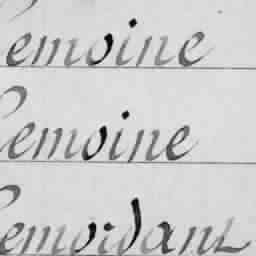 Lemoine
Lemoine
Lemordant